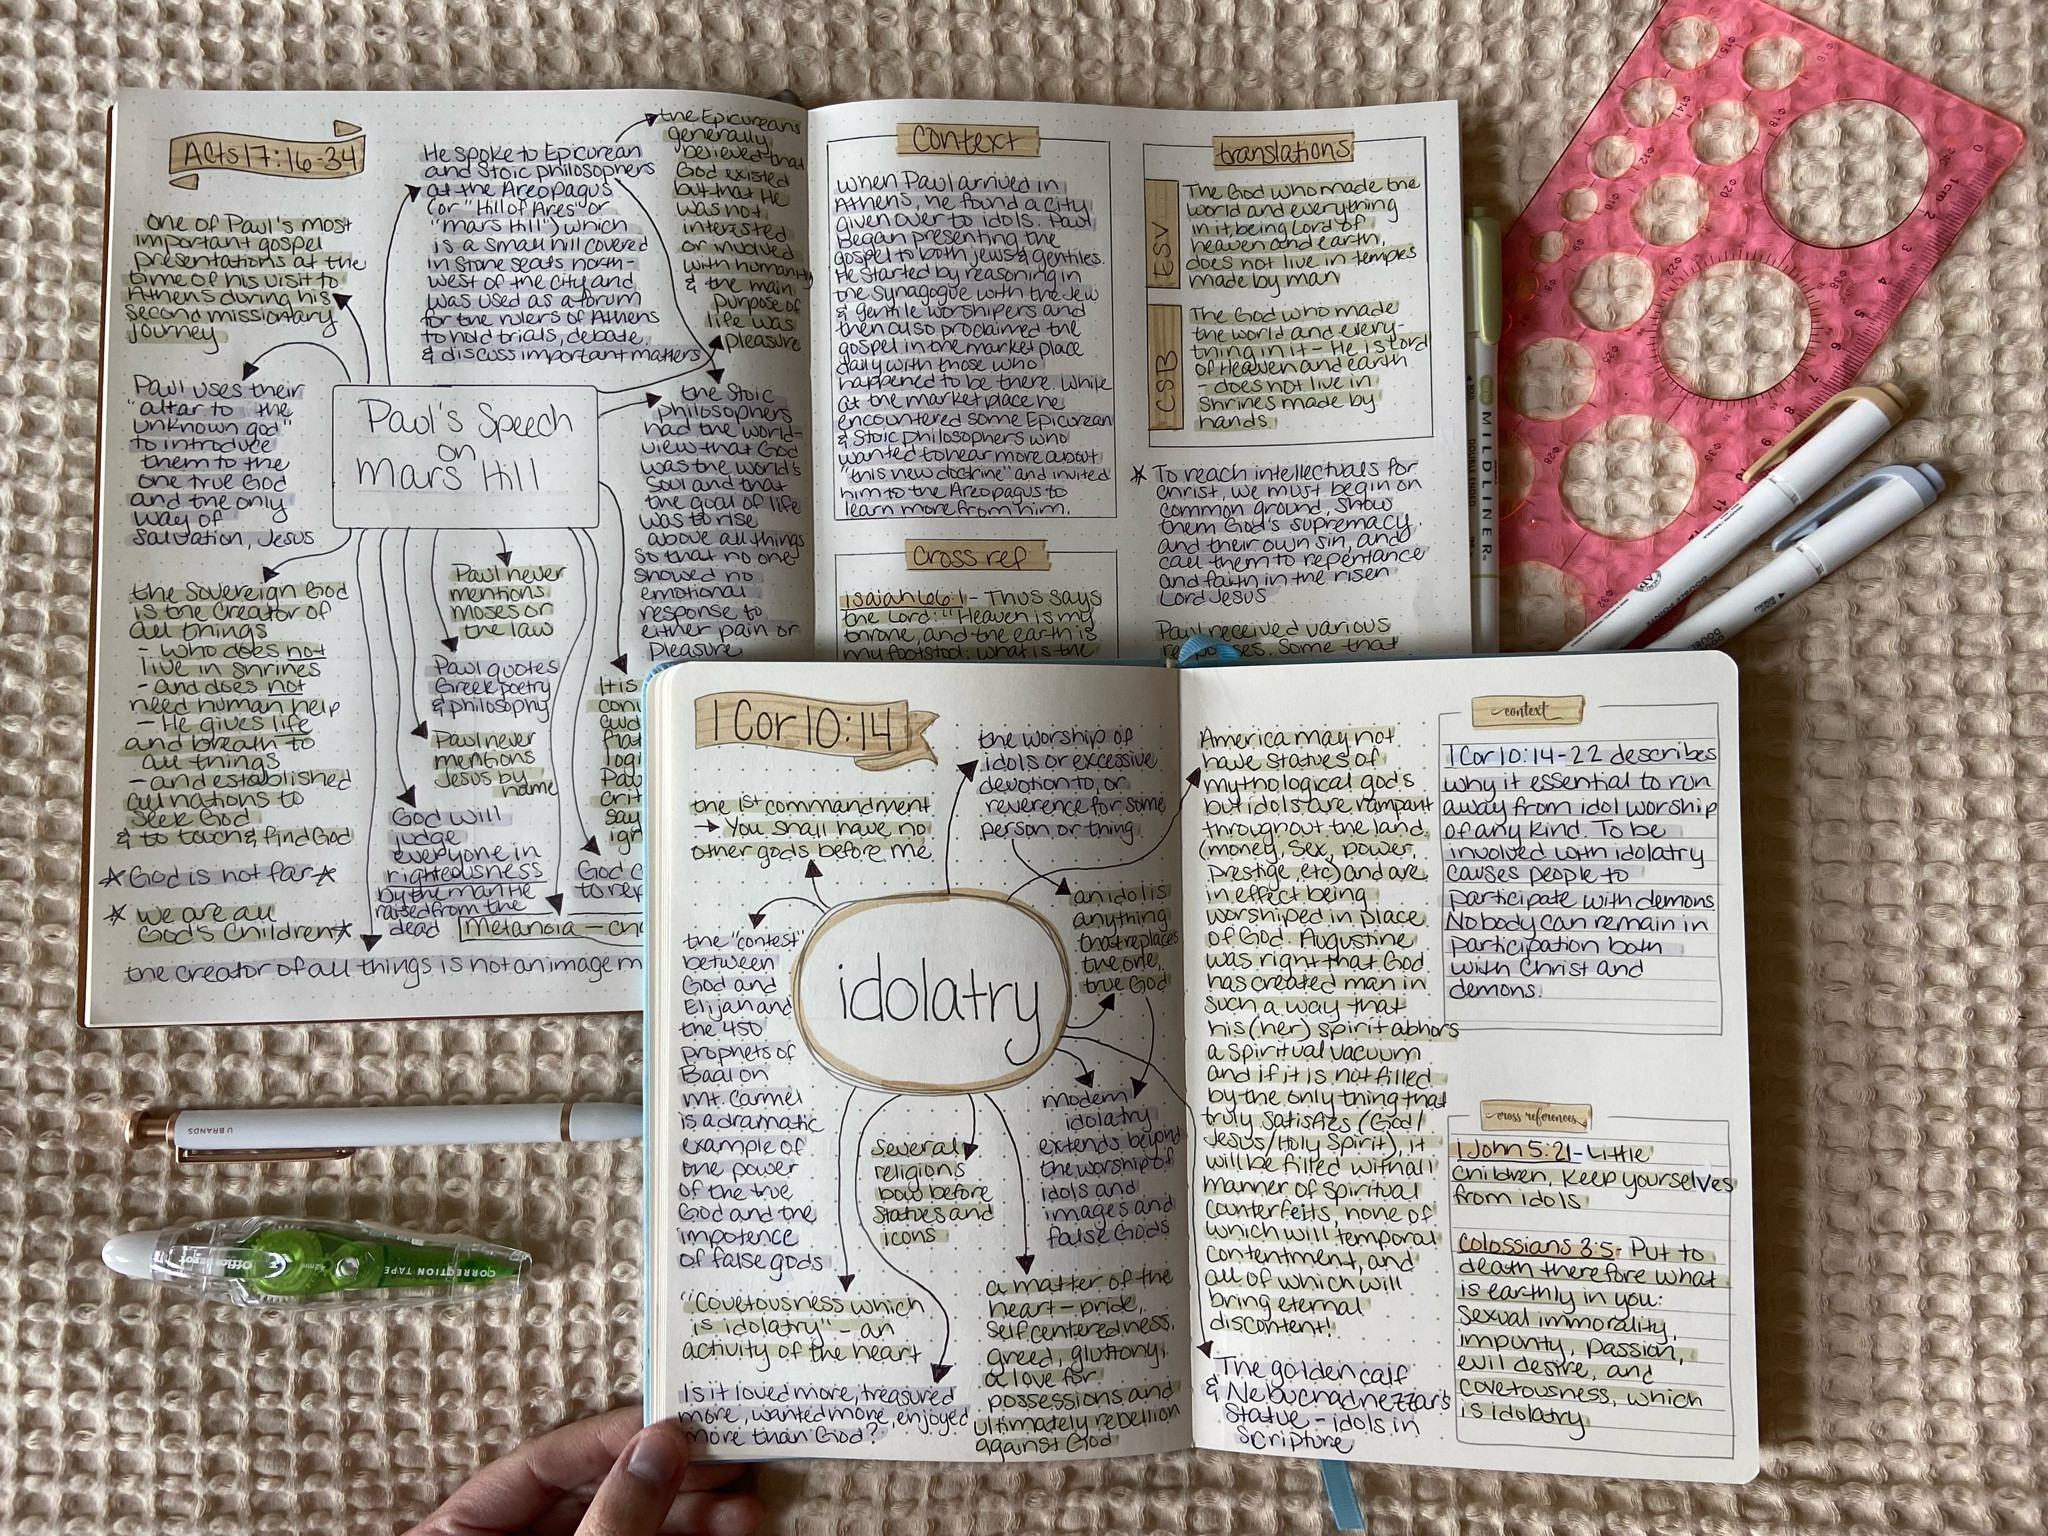 Acts 17:16-34
one of Paul's most
important gospel
presentations at the
time of his visit to
Athens during his
second missionary
journey
He spoke to Epicurean
and Stoic philosophers
at the Areopagus
(or "Hill of Ares" or
"Mars Hill") which
is a small hill covered
in stone seats north-
west of the city and
was used as a forum
for the rulers of Athens
to hold trials, debate,
& discuss important matters
the Epicureans
generally
believed that
God existed
but that He
was not
interested
or involved
with humanity
& the main
purpose of
life was
pleasure
Paul uses their
"altar to the
unknown god"
to introduce
them to the
one true God
and the only
way of
salvation, Jesus
Paul's Speech
on
Mars Hill
the Stoic
philosophers
had the world-
view that God
was the world's
soul and that
the goal of life
was to rise
above all things
so that no one
showed no
emotional
response to
either pain or
pleasure
the Sovereign God
is the Creator of
all things
- who does not
live in shrines
- and does not
need human help
- He gives life
and breath to
all things
- and established
all nations to
seek God
& to touch & find God
God is not far
we are all
God's Children
Paul never
mentions
Moses or
the law
Paul quotes
Greek poetry
& philosophy
Paul never
mentions
Jesus by
name
God will
judge
everyone in
righteousness
by the man He
raised from the
dead
It is
God c
to rep
Metanoia - ch
the creator of all things is not an image m
Context
when Paul arrived in
Athens, he found a city
given over to idols. Paul
began presenting the
gospel to both jews & gentiles.
He started by reasoning in
the synagogue with the Jew
& gentile worshipers and
then also proclaimed the
gospel in the market place
daily with those who
happened to be there. While
at the market place he
encountered some Epicurean
& Stoic Philosophers who
wanted to hear more about
"this new doctrine" and invited
him to the Areopagus to
learn more from him.
Cross ref
Isaiah 66:1 - Thus says
the Lord: "Heaven is my
throne, and the earth is
my footstool; what is the
translations
ESV
The God who made the
world and everything
in it being Lord of
heaven and earth,
does not live in temples
made by man
CSB
The God who made
the world and every-
thing in it - He is Lord
of Heaven and earth
- does not live in
shrines made by
hands
To reach intellectuals for
Christ, we must begin on
common ground, show
them God's supremacy
and their own sin, and
call them to repentance
and faith in the risen
Lord Jesus
Paul received various
responses. Some that
MILDLINER
1 Cor 10:14
the 1st commandment
→ You shall have no
other gods before me
the worship of
idols or excessive
devotion to, or
reverence for some
person, or thing
an idol is
anything
that replaces
the one,
true God
the "contest"
between
God and
Elijah and
the 450
prophets of
Baal on
Mt. Carmel
is a dramatic
example of
the power
of the true
God and the
impotence
of false gods
idolatry
Several
religions
bow before
statues and
icons
modern
idolatry
extends beyond
the worship of
idols and
images and
false Gods
"Covetousness which
is idolatry" - an
activity of the heart
Is it loved more, treasured
more, wanted more, enjoyed
more than God?
a matter of the
heart - pride,
self centeredness,
greed, gluttony,
a love for
possessions and
ultimately rebellion
against God
America may not
have statues of
mythological god's
but idols are rampant
throughout the land
(money, sex, power,
prestige, etc) and are
in effect being
worshiped in place
of God. Augustine
was right that God
has created man in
such a way that
his (her) spirit abhors
a spiritual vacuum
and if it is not filled
by the only thing that
truly satisfies (God/
Jesus/Holy Spirit), it
will be filled with all
manner of spiritual
counterfeits, none of
which will temporal
contentment, and
all of which will
bring eternal
discontent!
The golden calf
& Nebuchadnezzar's
statue - idols in
Scripture
context
1 Cor 10:14-22 describes
why it essential to run
away from idol worship
of any kind. To be
involved with idolatry
causes people to
participate with demons
Nobody can remain in
participation both
with Christ and
demons.
cross references
1 John 5:21 - Little
children, keep yourselves
from idols
Colossians 3:5 - Put to
death therefore what
is earthly in you:
sexual immorality,
impurity, passion,
evil desire, and
covetousness, which
is idolatry
U BRANDS
Office Depot
CORRECTION TAPE